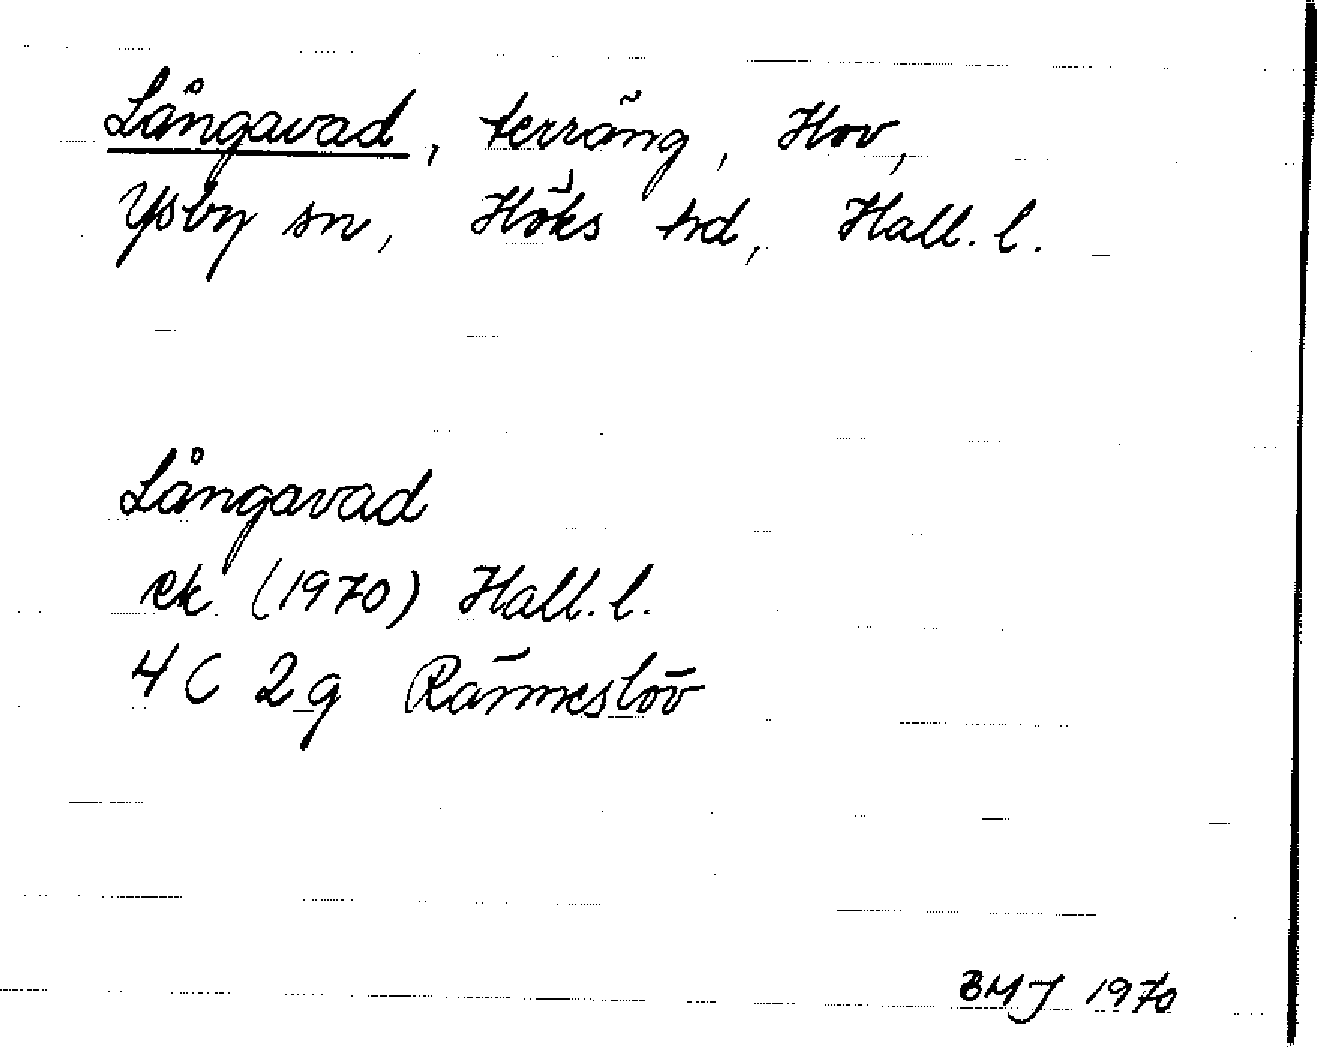 Långavad, terräng, Hov,
Ysby sn, Höks hd, Hall. l.
Långavad
ek. (1970) Hall. l.
4C 2g Ränneslöv
BMJ 1970